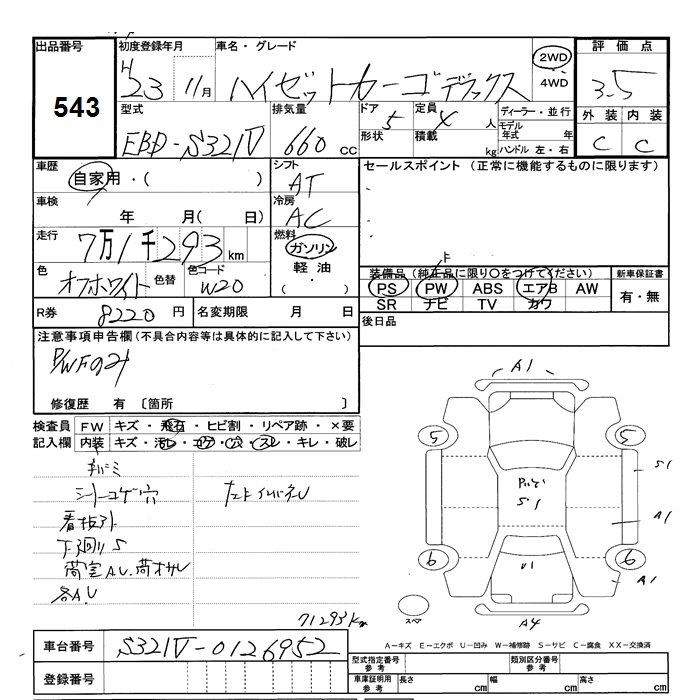 出品番号 初度登録年月 車名・グレード 2WD 評価点
543
H23 11月 ハイゼットカーゴ デラックス 4WD 3.5
型式 排気量 ドア 定員 ディーラー・並行 外装 内装
EBD-S321V 660 cc 5 4 人 モデル年式 年 C C
形状 積載 kg ハンドル 左・右
車歴 シフト セールスポイント (正常に機能するものに限ります)
自家用・( ) AT
車検 冷房
年 月( 日) AC
走行 燃料
7万1千293 km ガソリン
色 色替 色コード 軽油 装備品 (純正品に限り○をつけてください) 新車保証書
オフホワイト W20 ・( ) PS PW ABS エアB AW 有・無
SR ナビ TV カワ
R券 8220 円 名変期限 月 日 後日品
注意事項申告欄 (不具合内容等は具体的に記入して下さい)
P/WFのみ
修復歴 有 〔箇所 〕
検査員 FW キズ・飛石・ヒビ割・リペア跡・×要
記入欄 内装 キズ・汚レ・コゲ・穴・スレ・キレ・破レ
シートコゲ穴
看板外
下廻りS
荷室AU.
各AU
71293km
A1
5 5
S1
S1
A1
U1
6 6
A1
スペア
A4
A-キズ E-エクボ U-凹み W-補修跡 S-サビ C-腐食 XX-交換済
車台番号 S321V-0126952
型式指定番号 参考 類別区分番号 参考
登録番号 車庫証明用 参考 長さ cm 幅 cm 高さ cm